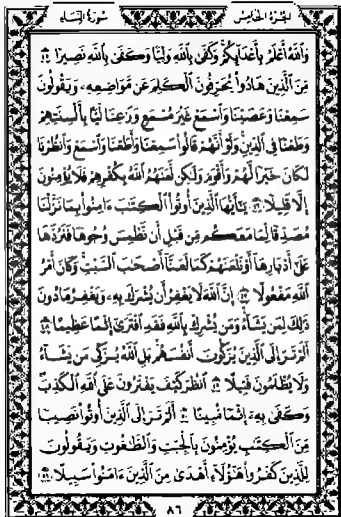 الجزء الخامس سورة النساء
وَاللَّهُ أَعْلَمُ بِأَعْدَائِكُمْ وَكَفَىٰ بِاللَّهِ وَلِيًّا وَكَفَىٰ بِاللَّهِ نَصِيرًا ۝٤٥
مِنَ الَّذِينَ هَادُوا يُحَرِّفُونَ الْكَلِمَ عَن مَّوَاضِعِهِ وَيَقُولُونَ
سَمِعْنَا وَعَصَيْنَا وَاسْمَعْ غَيْرَ مُسْمَعٍ وَرَاعِنَا لَيًّا بِأَلْسِنَتِهِمْ
وَطَعْنًا فِي الدِّينِ وَلَوْ أَنَّهُمْ قَالُوا سَمِعْنَا وَأَطَعْنَا وَاسْمَعْ وَانظُرْنَا
لَكَانَ خَيْرًا لَّهُمْ وَأَقْوَمَ وَلَٰكِن لَّعَنَهُمُ اللَّهُ بِكُفْرِهِمْ فَلَا يُؤْمِنُونَ
إِلَّا قَلِيلًا ۝٤٦ يَا أَيُّهَا الَّذِينَ أُوتُوا الْكِتَٰبَ ءَامِنُوا بِمَا نَزَّلْنَا
مُصَدِّقًا لِّمَا مَعَكُم مِّن قَبْلِ أَن نَّطْمِسَ وُجُوهًا فَنَرُدَّهَا
عَلَىٰ أَدْبَارِهَا أَوْ نَلْعَنَهُمْ كَمَا لَعَنَّا أَصْحَٰبَ السَّبْتِ وَكَانَ أَمْرُ
اللَّهِ مَفْعُولًا ۝٤٧ إِنَّ اللَّهَ لَا يَغْفِرُ أَن يُشْرَكَ بِهِ وَيَغْفِرُ مَا دُونَ
ذَٰلِكَ لِمَن يَشَاءُ وَمَن يُشْرِكْ بِاللَّهِ فَقَدِ افْتَرَىٰ إِثْمًا عَظِيمًا ۝٤٨
أَلَمْ تَرَ إِلَى الَّذِينَ يُزَكُّونَ أَنفُسَهُم بَلِ اللَّهُ يُزَكِّي مَن يَشَاءُ
وَلَا يُظْلَمُونَ فَتِيلًا ۝٤٩ انظُرْ كَيْفَ يَفْتَرُونَ عَلَى اللَّهِ الْكَذِبَ
وَكَفَىٰ بِهِ إِثْمًا مُّبِينًا ۝٥٠ أَلَمْ تَرَ إِلَى الَّذِينَ أُوتُوا نَصِيبًا
مِّنَ الْكِتَٰبِ يُؤْمِنُونَ بِالْجِبْتِ وَالطَّٰغُوتِ وَيَقُولُونَ
لِلَّذِينَ كَفَرُوا هَٰؤُلَاءِ أَهْدَىٰ مِنَ الَّذِينَ ءَامَنُوا سَبِيلًا ۝٥١
٨٦